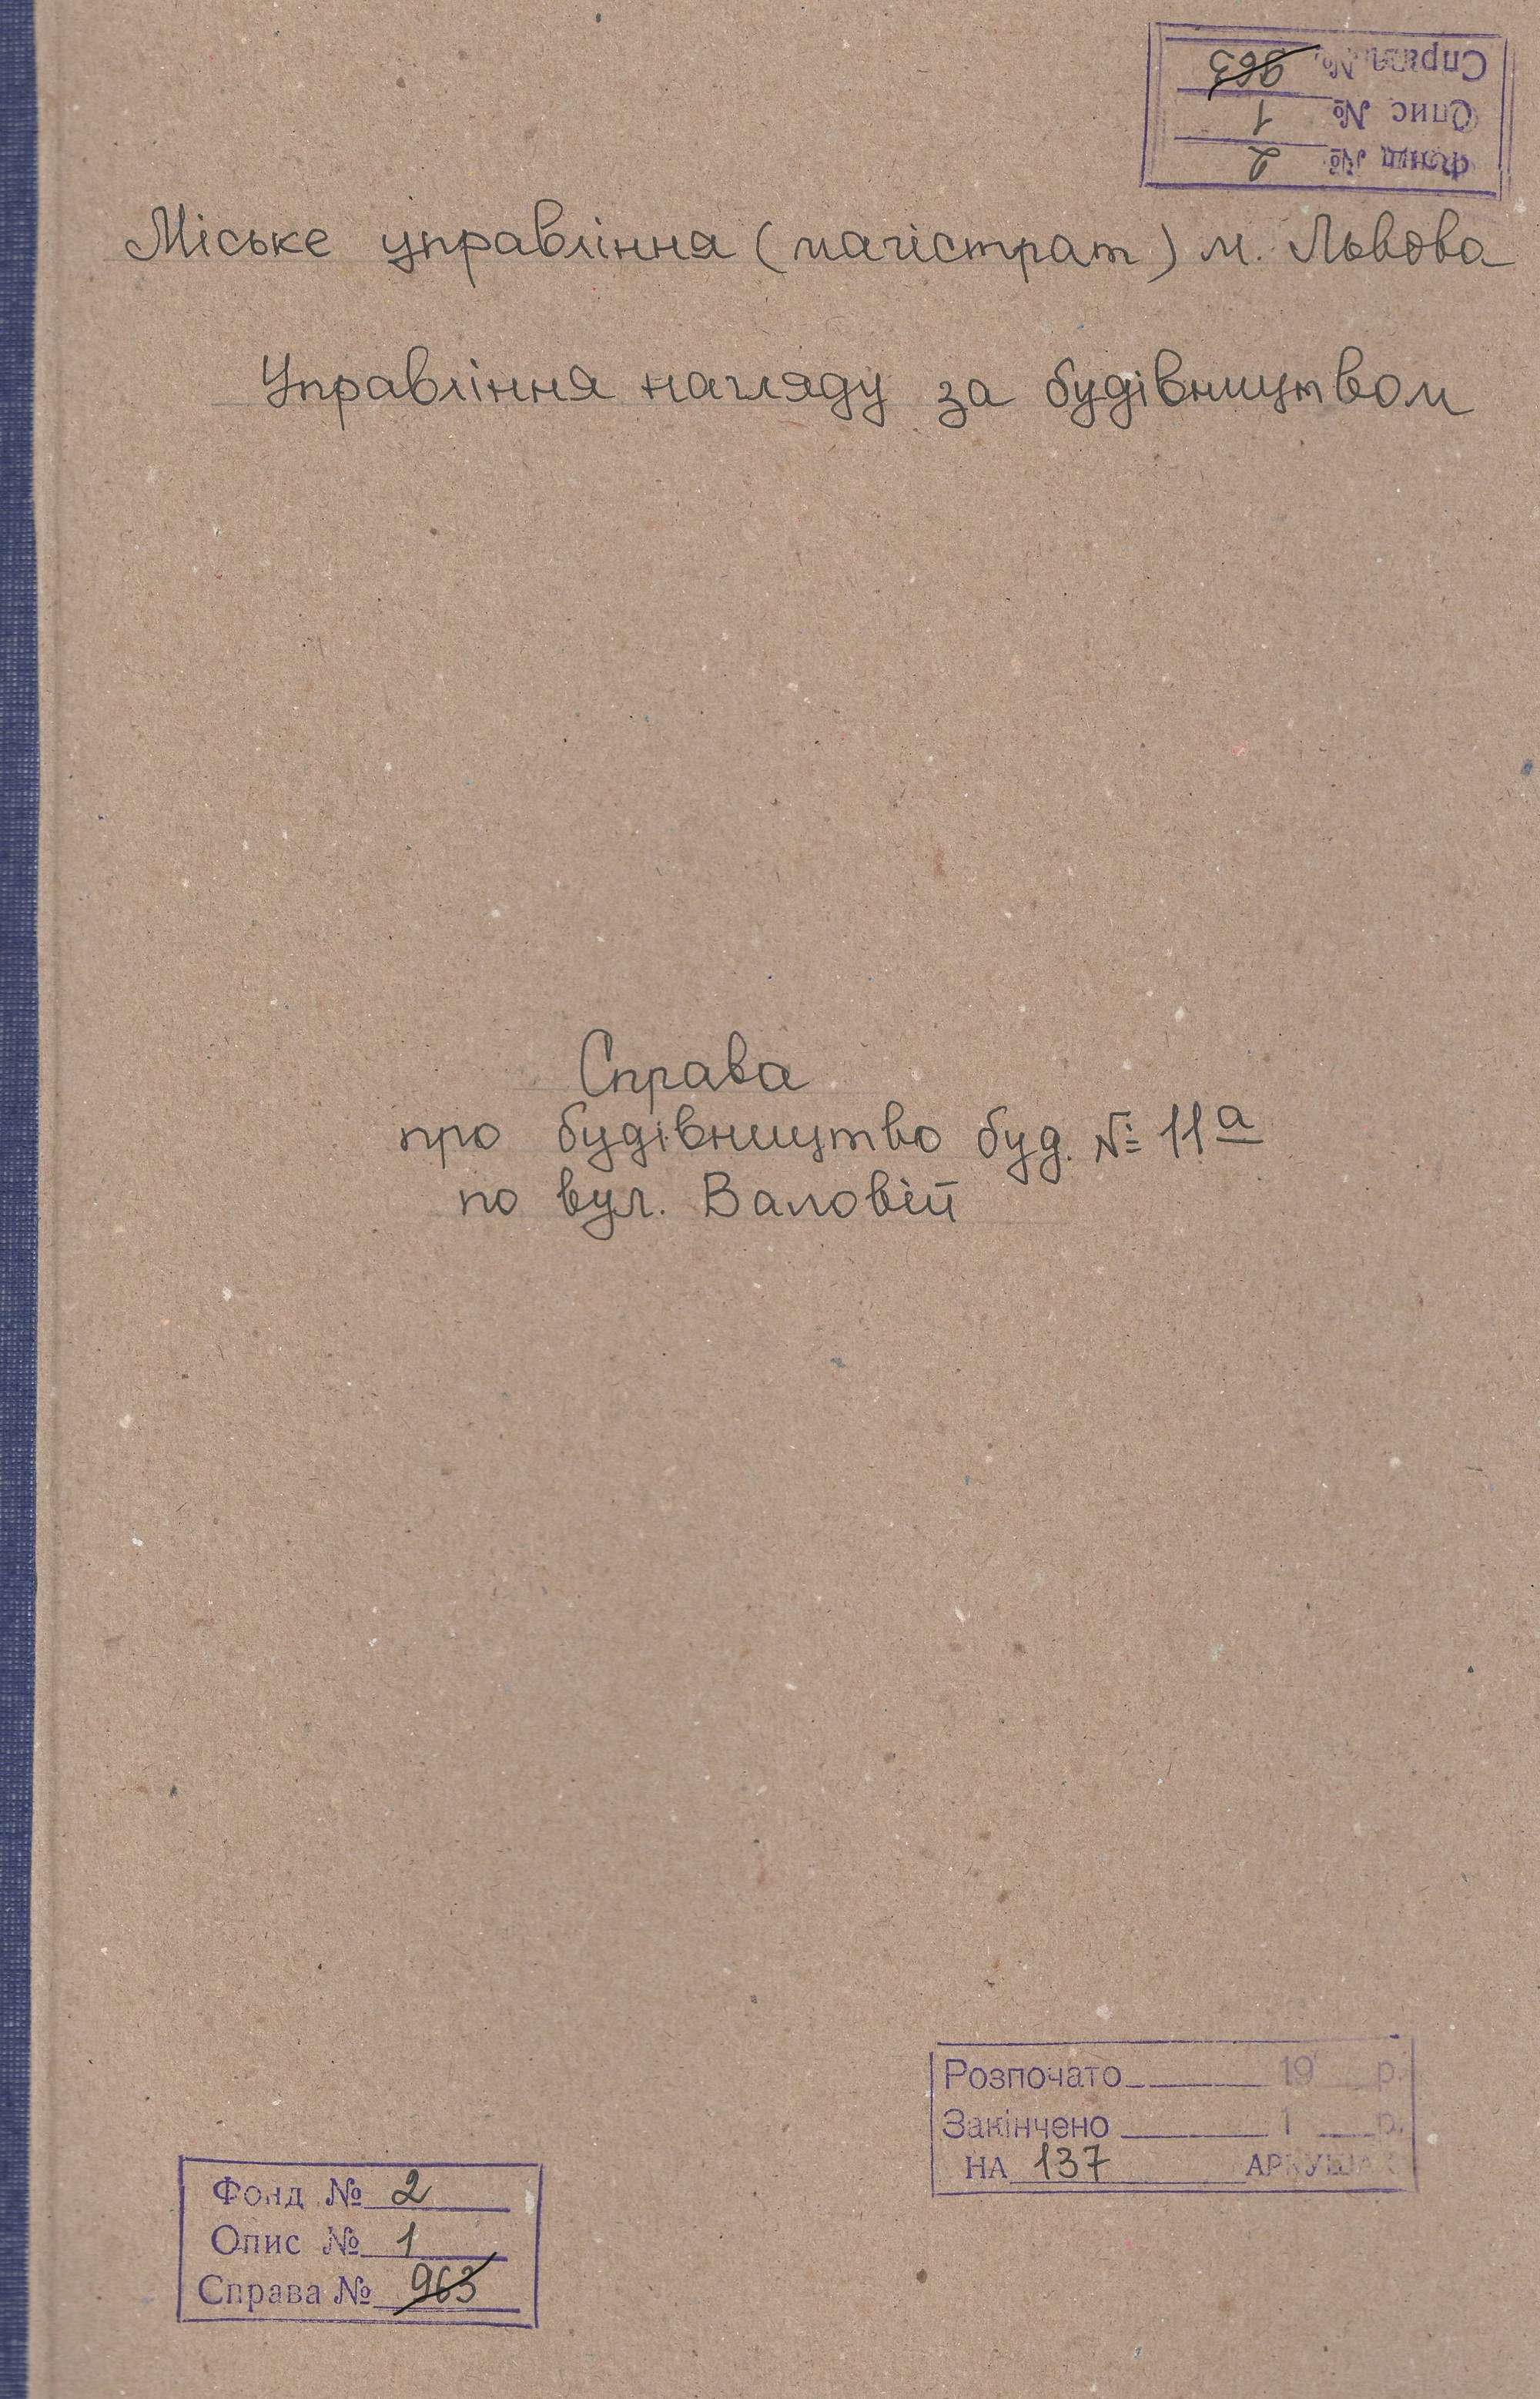 Справа № 963
Опис № 1
Фонд № 2
Міське управління (магістрат) м. Львова
Управління нагляду за будівництвом
Справа
про будівництво буд. № 11а
по вул. Валовій
Розпочато 19 р.
Закінчено 1 р.
НА 137 АРКУШАХ
Фонд № 2
Опис № 1
Справа № 963